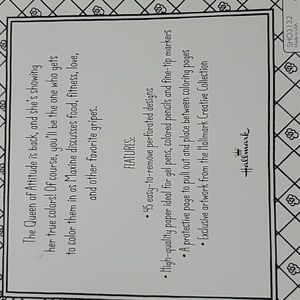 The Queen of Attitude is back, and she's showing
her true colors! Of course, you'll be the one who gets
to color them in as Maxine discusses food, fitness, love,
and other favorite gripes.
FEATURES:
• 45 easy-to-remove perforated designs
• High-quality paper ideal for gel pens, colored pencils and fine-tip markers
• A protective page to pull out and place between coloring pages
• Exclusive artwork from the Hallmark Creative Collection
Hallmark
SHO3132